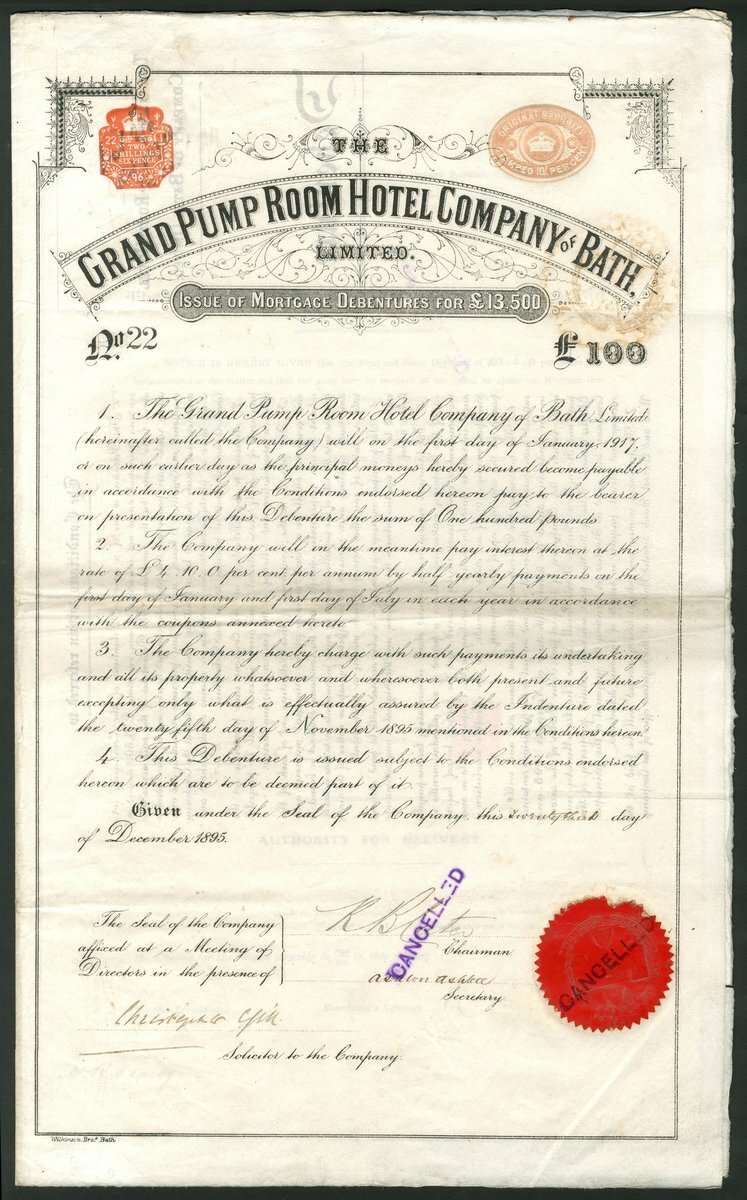 22
TWO
SHILLINGS
SIX PENCE
96
THE
GRAND PUMP ROOM HOTEL COMPANY OF BATH,
LIMITED.
ISSUE OF MORTGAGE DEBENTURES FOR £13,500
No. 22
£ 100
1. The Grand Pump Room Hotel Company of Bath Limited
(hereinafter called the Company) will on the first day of January, 1917,
or on such earlier day as the principal moneys hereby secured become payable
in accordance with the Conditions endorsed hereon pay to the bearer
on presentation of this Debenture the sum of One hundred Pounds
2. The Company will in the meantime pay interest thereon at the
rate of £4.10.0 per cent per annum by half yearly payments on the
first day of January and first day of July in each year in accordance
with the coupons annexed hereto.
3. The Company hereby charge with such payments its undertaking
and all its property whatsoever and wheresoever both present and future
excepting only what is effectually assured by the Indenture dated
the twenty fifth day of November 1895 mentioned in the Conditions hereon.
4. This Debenture is issued subject to the Conditions endorsed
hereon which are to be deemed part of it.
Given under the Seal of the Company this twenty third day
of December 1895.
AUTHORITY FOR DELIVERY.
The Seal of the Company
affixed at a Meeting of
Directors in the presence of
Chairman
Secretary
CANCELLED
CANCELLED
Solicitor to the Company.
Wilkinson Bros. Bath.